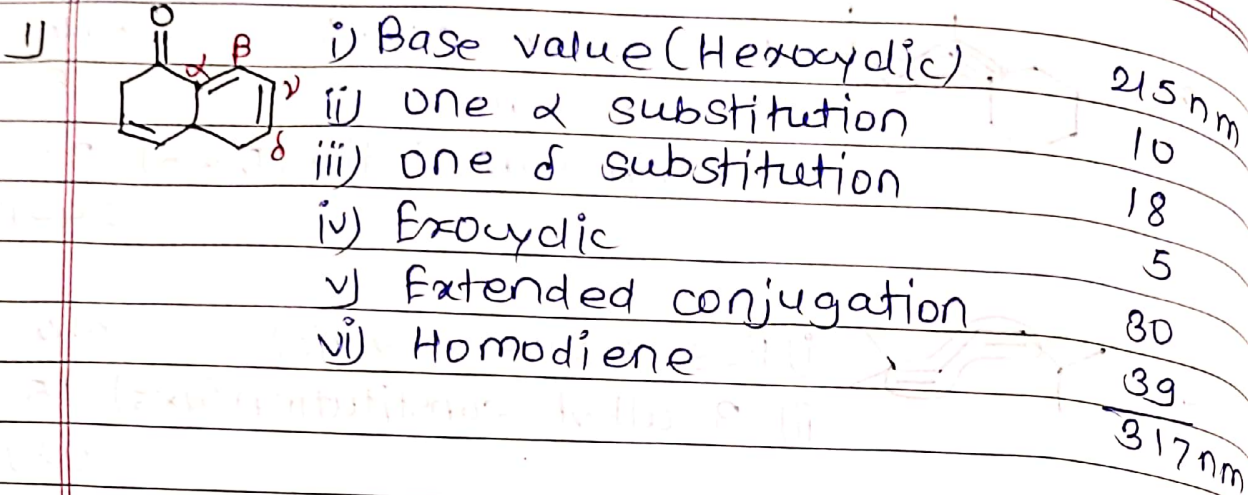 1)
O
α β γ δ
i) Base value (Hexocydic). 215nm
ii) one α substitution 10
iii) one δ substitution 18
iv) Exocyclic 5
v) Extended conjugation 30
vi) Homodiene 39
317nm